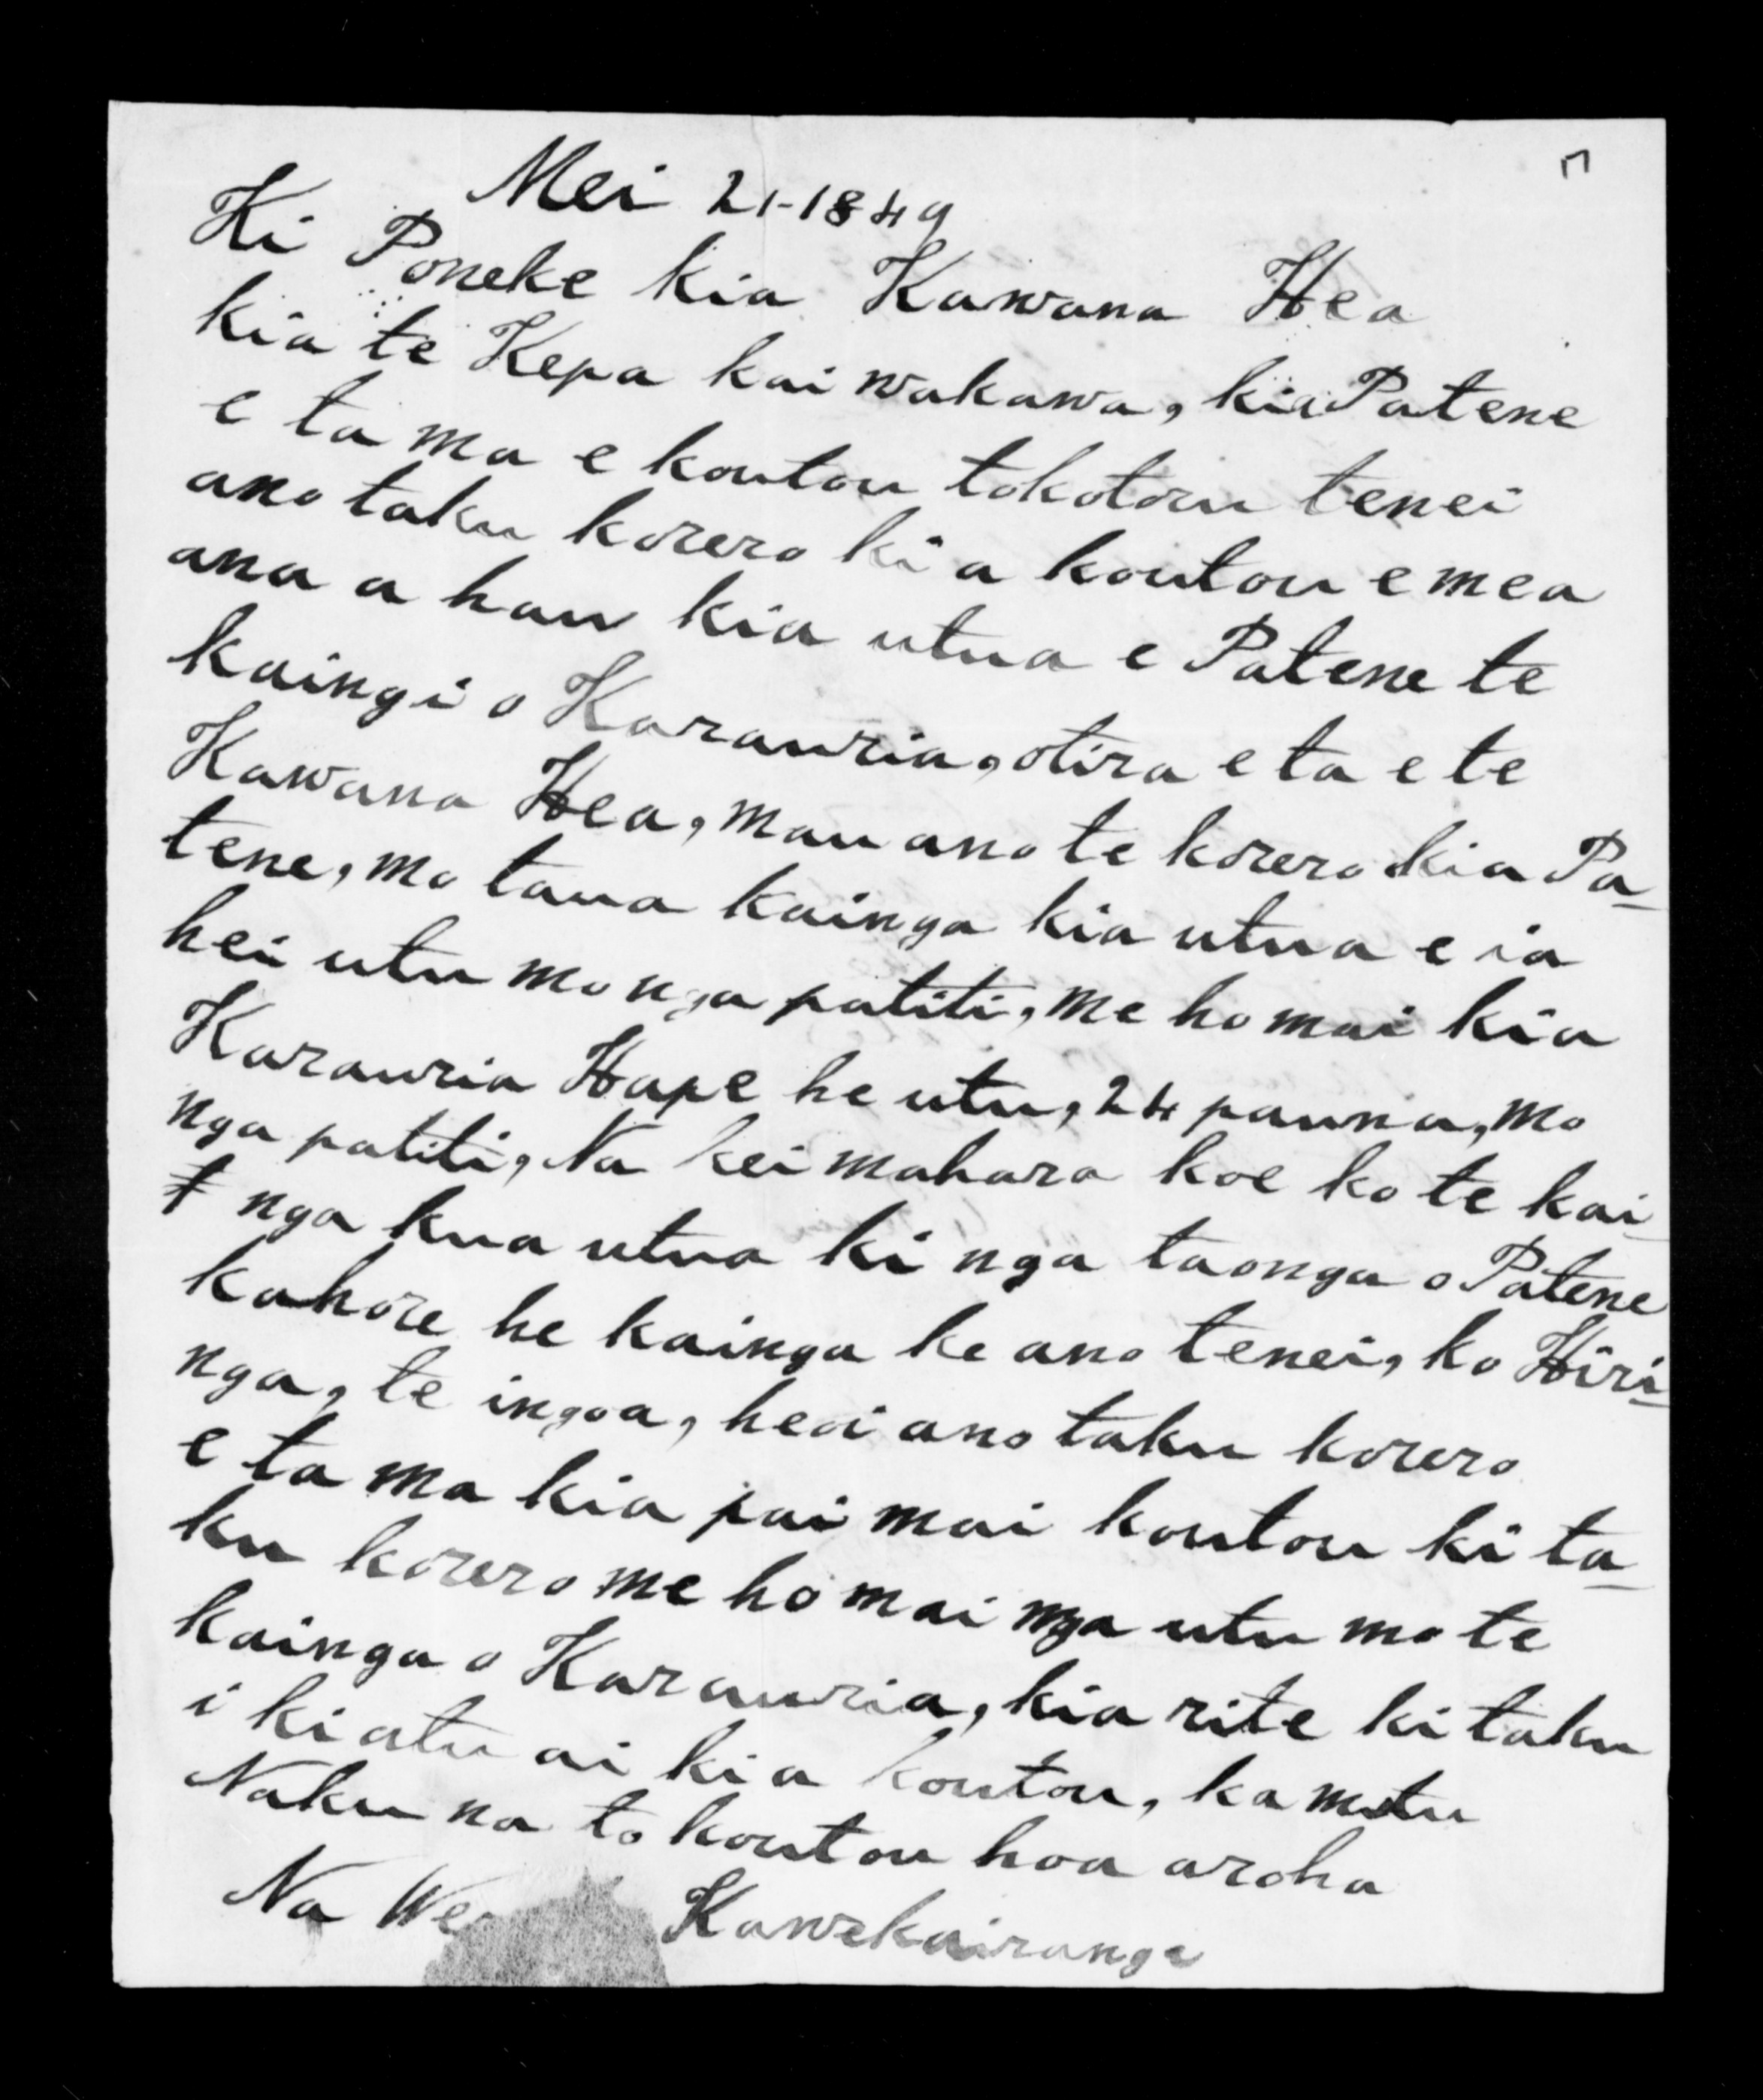 Mei 21-1849
Ki Poneke kia Kawana Hea
kia te Kepa kai wakawa, kia Patene
e ta ma e koutou tokotoru tenei
ano taku korero ki a koutou e mea
ana a hau kia utua e Patene te
kaingi o Karauria, otira e ta e te
Kawana Hea, mau ano te korero kia Pa-
tene, mo taua kainga kia utua e ia
hei utu mo nga patiti, me homai kia
Karauria Hape he utu, 24 pauna, mo
nga patiti, Na kei mahara koe ko te kai-
nga kua utua ki nga taonga o Patene
kahore he kainga ke ano tenei, ko Hiri-
nga, te ingoa, heoi ano taku korero
e ta ma kia pai mai koutou ki ta-
ku korero me ho mai nga utu mo te
kainga o Karauria, kia rite ki taku
i ki atu ai ki a koutou, ka mutu
Naku na to koutou hoa aroha
Na We Kawekairange